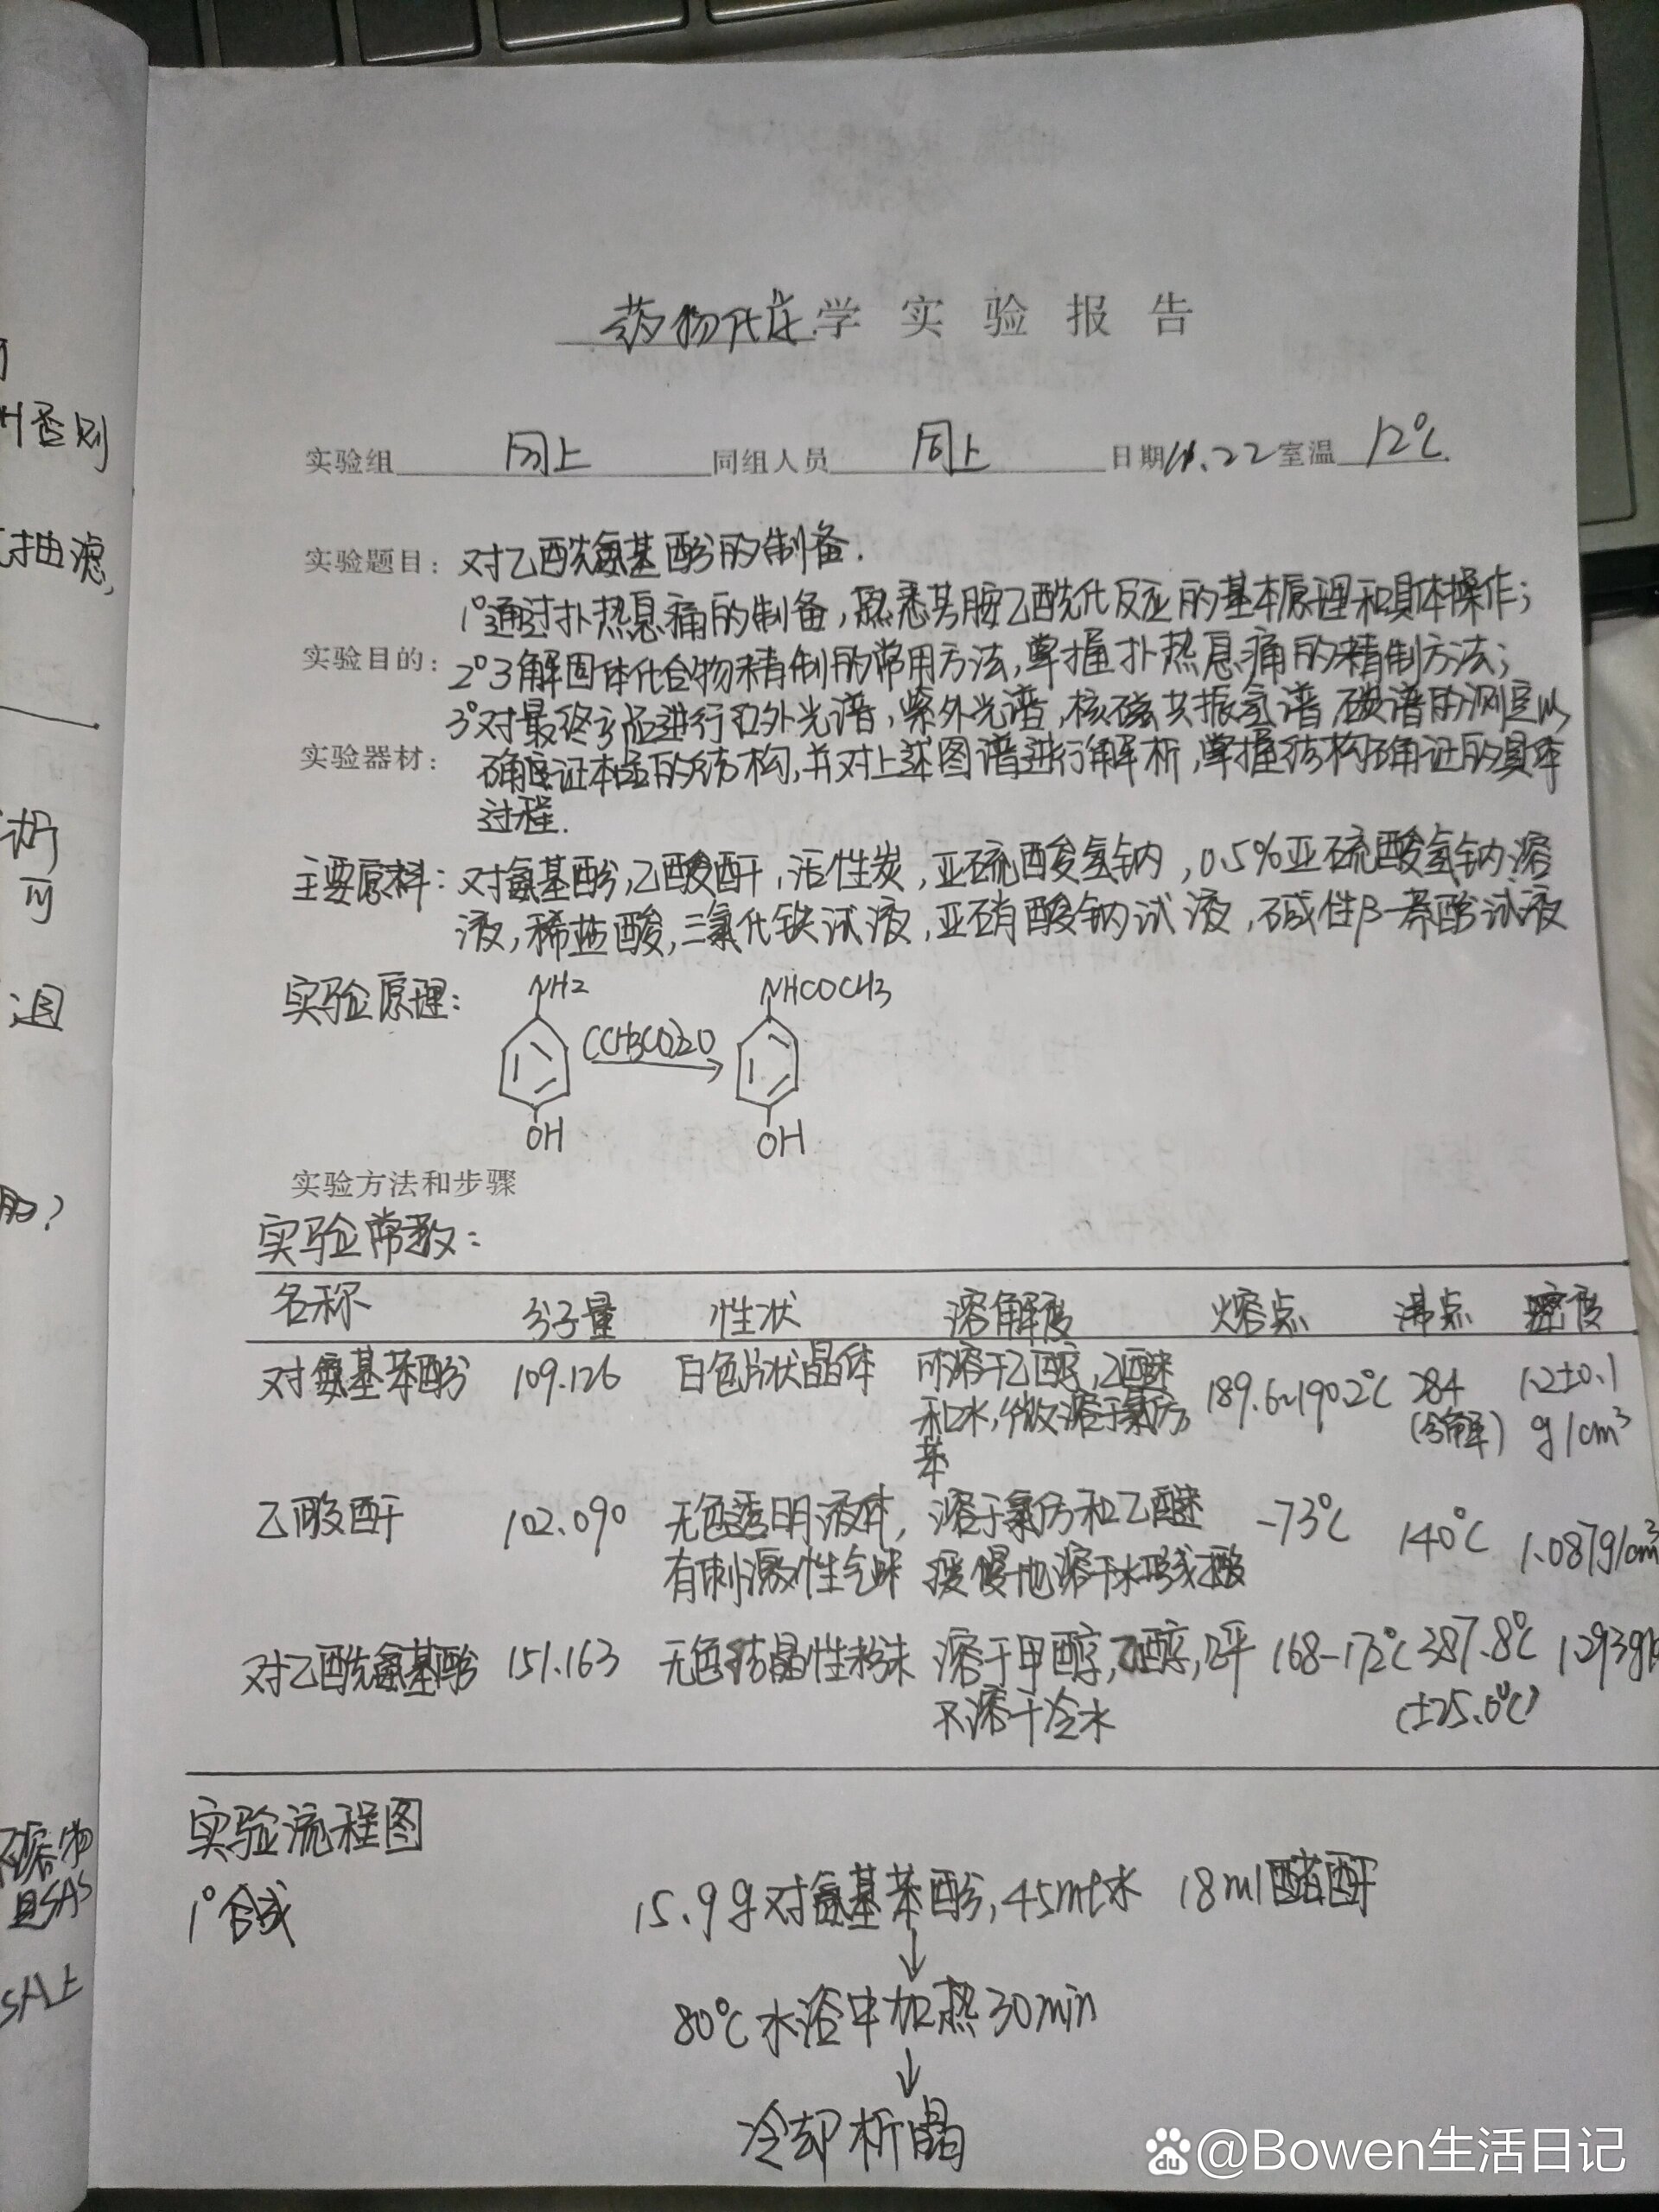 药物化学 学实验报告
实验组 同上 同组人员 同上 日期 11.22 室温 12℃
实验题目：对乙酰氨基酚的制备.
1°通过扑热息痛的制备，熟悉芳胺乙酰化反应的基本原理和具体操作；
实验目的：2°了解固体化合物精制的常用方法，掌握扑热息痛的精制方法；
3°对最终产品进行红外光谱，紫外光谱，核磁共振氢谱，碳谱的测定以
实验器材：确证本品的结构，并对上述图谱进行解析，掌握结构确证的具体
过程.
主要原料：对氨基酚，乙酸酐，活性炭，亚硫酸氢钠，0.5%亚硫酸氢钠溶
液，稀盐酸，三氯化铁试液，亚硝酸钠试液，碱性β-萘酚试液
实验原理：
NH2 NHCOCH3
(CH3CO)2O
OH OH
实验方法和步骤
实验常数：
名称 分子量 性状 溶解度 熔点 沸点 密度
对氨基苯酚 109.126 白色片状晶体 可溶于乙醇，乙醚 189.6~190.2℃ 284 1.2±0.1
和水，微溶于氯仿， (分解) g/cm³
苯
乙酸酐 102.090 无色透明液体， 溶于氯仿和乙醚 -73℃ 140℃ 1.087g/cm³
有刺激性气味 缓慢地溶于水形成酸
对乙酰氨基酚 151.163 无色结晶性粉末 溶于甲醇，乙醇，DMF 168-172℃ 387.8℃ 1.293g/
不溶于冷水 (±25.0℃)
实验流程图
1°合成 15.9g对氨基苯酚，45ml水 18ml醋酐
↓
80℃水浴中加热30min
↓
冷却析晶
H否则
抽滤，
可
退
du @Bowen生活日记